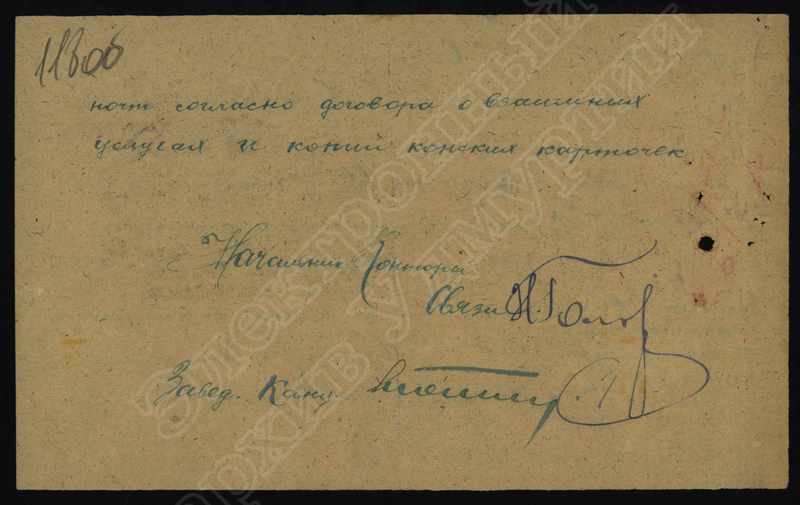 почт согласно договора о взаимных
услугах и копий конских карточек
Начальник Конторы
Связи
Завед. Канц.
Электронный
архив Удмуртии